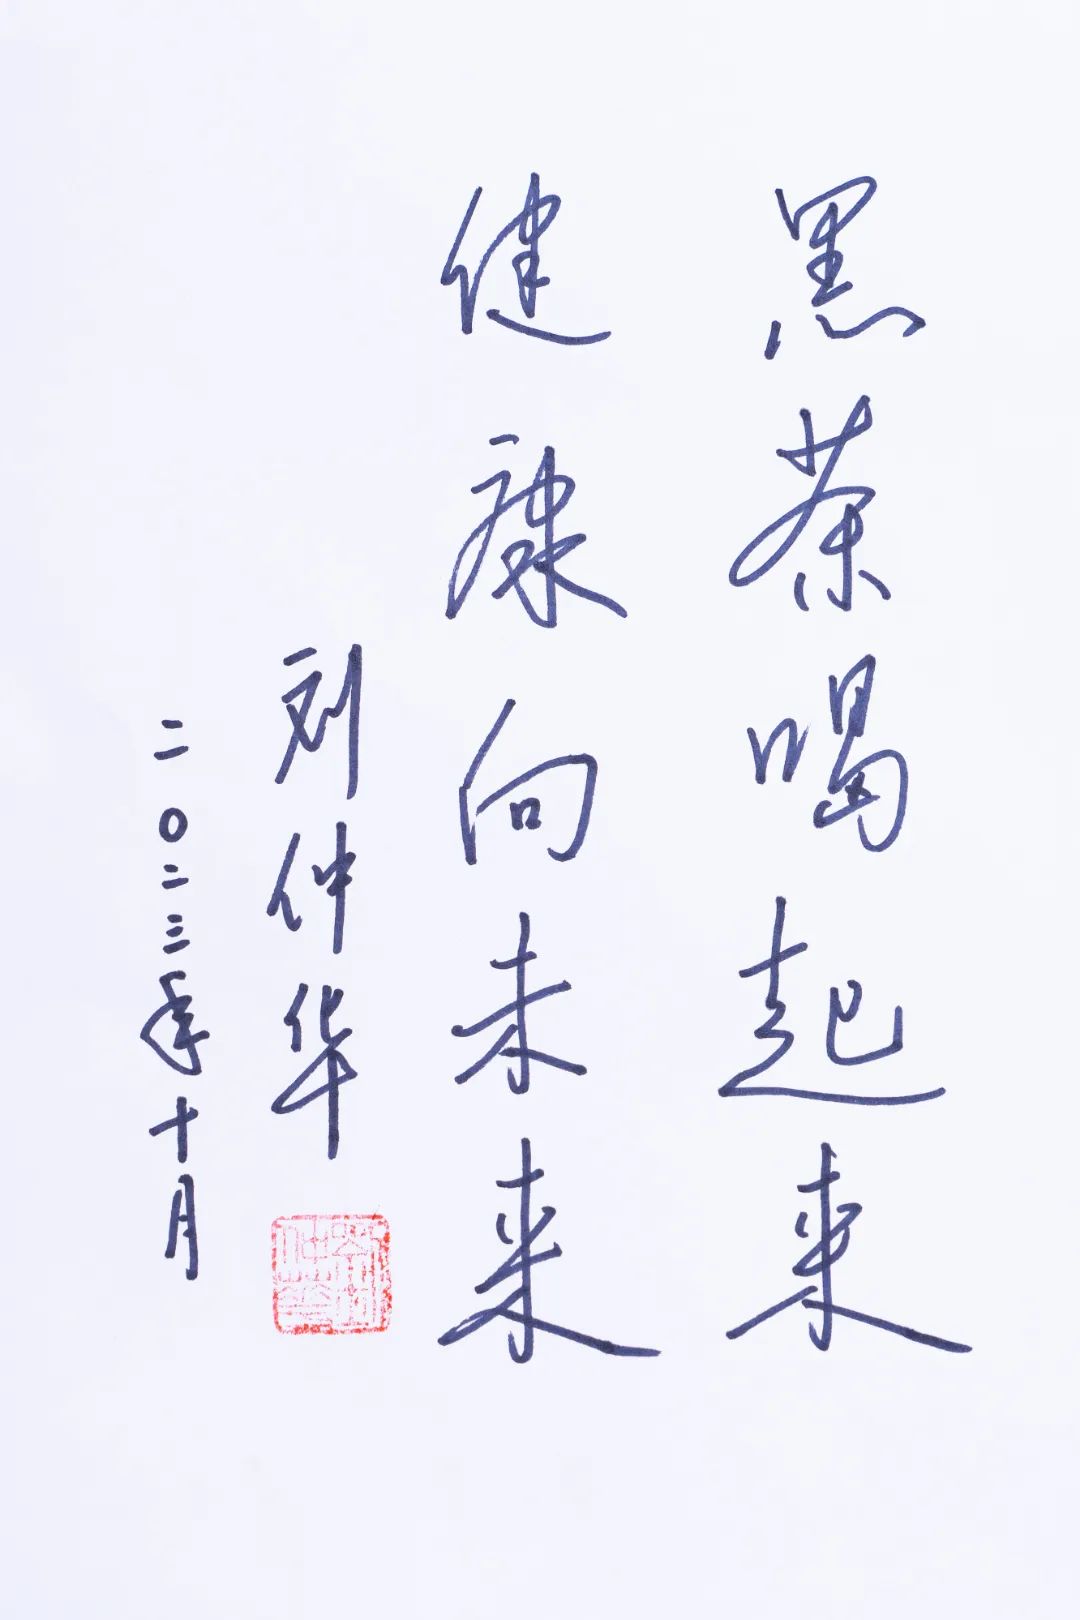 黑茶喝起来
健康向未来
刘仲华
二〇二三年十月